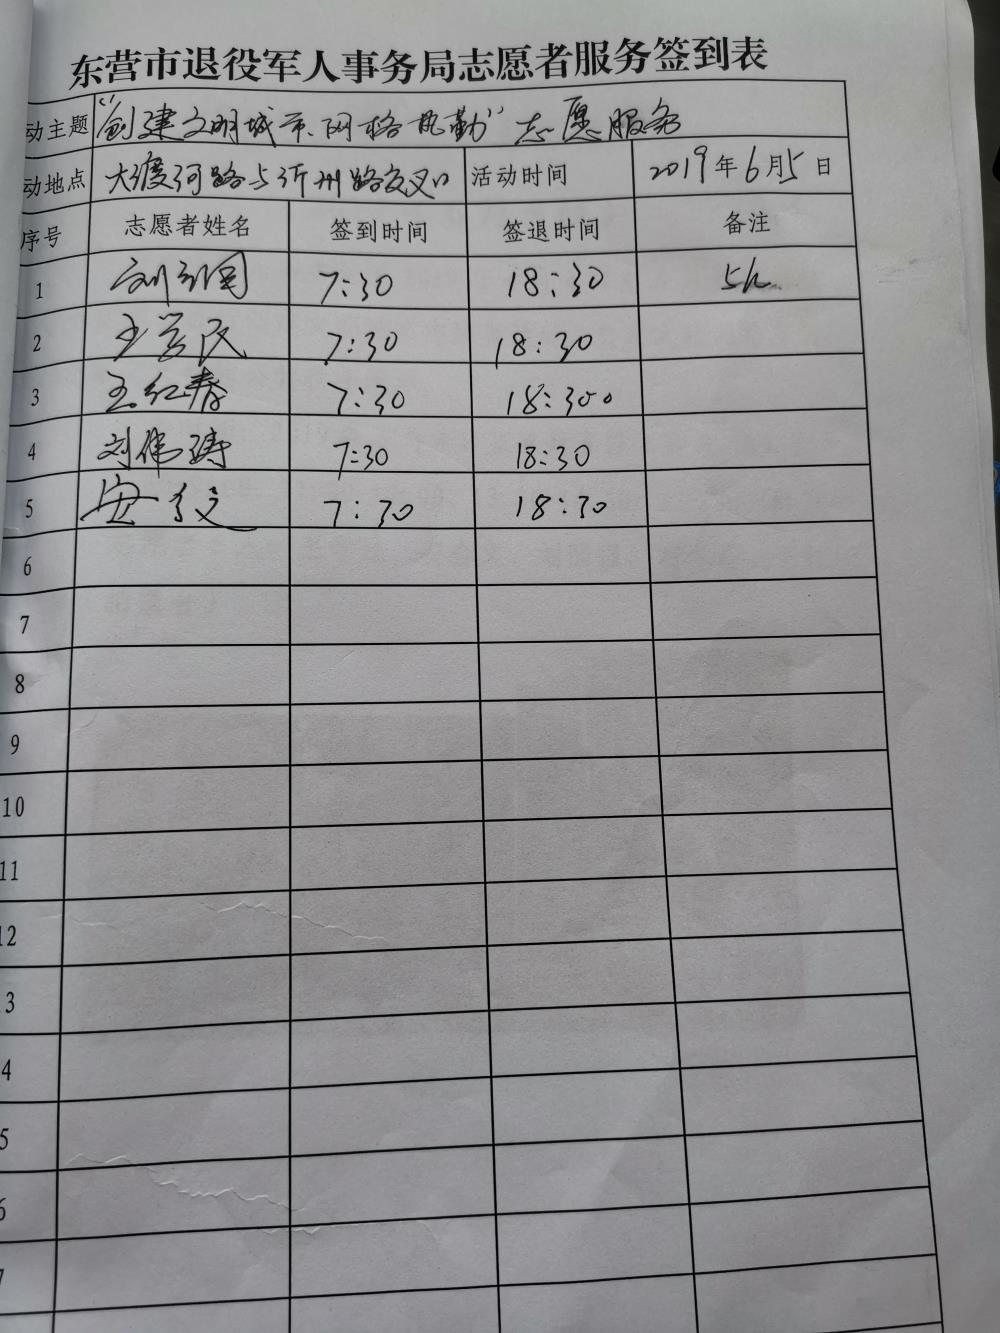 东营市退役军人事务局志愿者服务签到表
动主题 "创建文明城市、网格执勤" 志愿服务
动地点 大渡河路与沂州路交叉口 活动时间 2019年6月5日
序号 志愿者姓名 签到时间 签退时间 备注
1 7:30 18:30 5h
2 王学民 7:30 18:30
3 王红春 7:30 18:300
4 刘伟涛 7:30 18:30
5 7:30 18:30
6
7
8
9
10
11
12
3
4
5
6
7